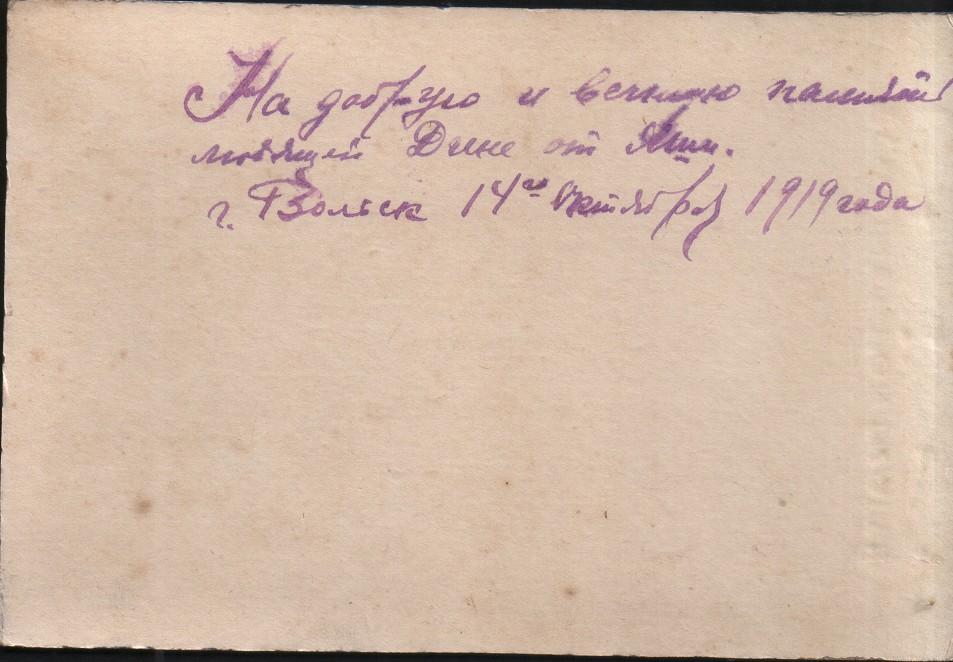 На добрую и вечную память
любящей Дине от Яши.
г. Вольск 14го октября 1919 года